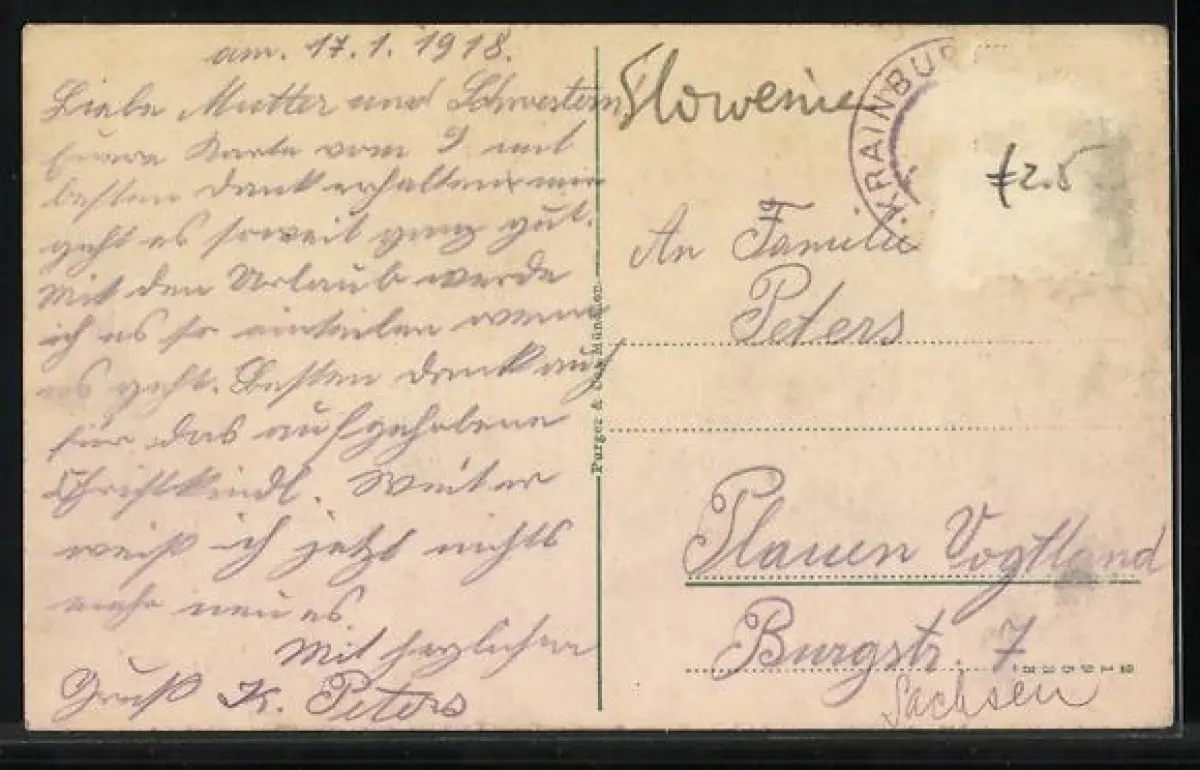 am. 17.1.1918.
Liebe Mutter und Schwestern!
Euere Karte vom 9. mit
besten Dank erhalten mir
geht es soweit ganz gut.
Mit den Urlaub werde
ich es so einteilen wenn
es geht. Besten Dank auch
für das aufgehobene
Christkindl. Weiter
weiß ich jetzt nichts
mehr neues.
Mit herzlichen
Gruß K. Peters
Purger & Co., München
Slowenien
KRAINBUR
€2.5
An Familie
Peters
Plauen Vogtland
Burgstr. 7
Sachsen